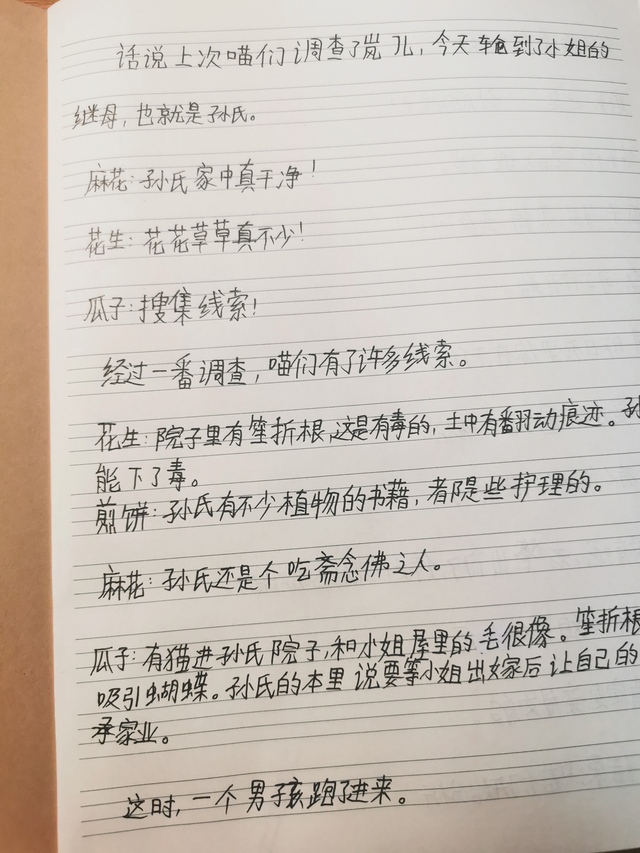 话说上次喵们调查了岚儿，今天轮到了小姐的
继母，也就是孙氏。
麻花：孙氏家中真干净！
花生：花花草草真不少！
瓜子：搜集线索！
经过一番调查，喵们有了许多线索。
花生：院子里有笙折根，这是有毒的，土中有翻动痕迹。孙
能下了毒。
煎饼：孙氏有不少植物的书藉，都是些护理的。
麻花：孙氏还是个吃斋念佛之人。
瓜子：有猫进孙氏院子，和小姐屋里的毛很像。笙折根
吸引蝴蝶。孙氏的本里说要等小姐出嫁后让自己的
承家业。
这时，一个男孩跑了进来。